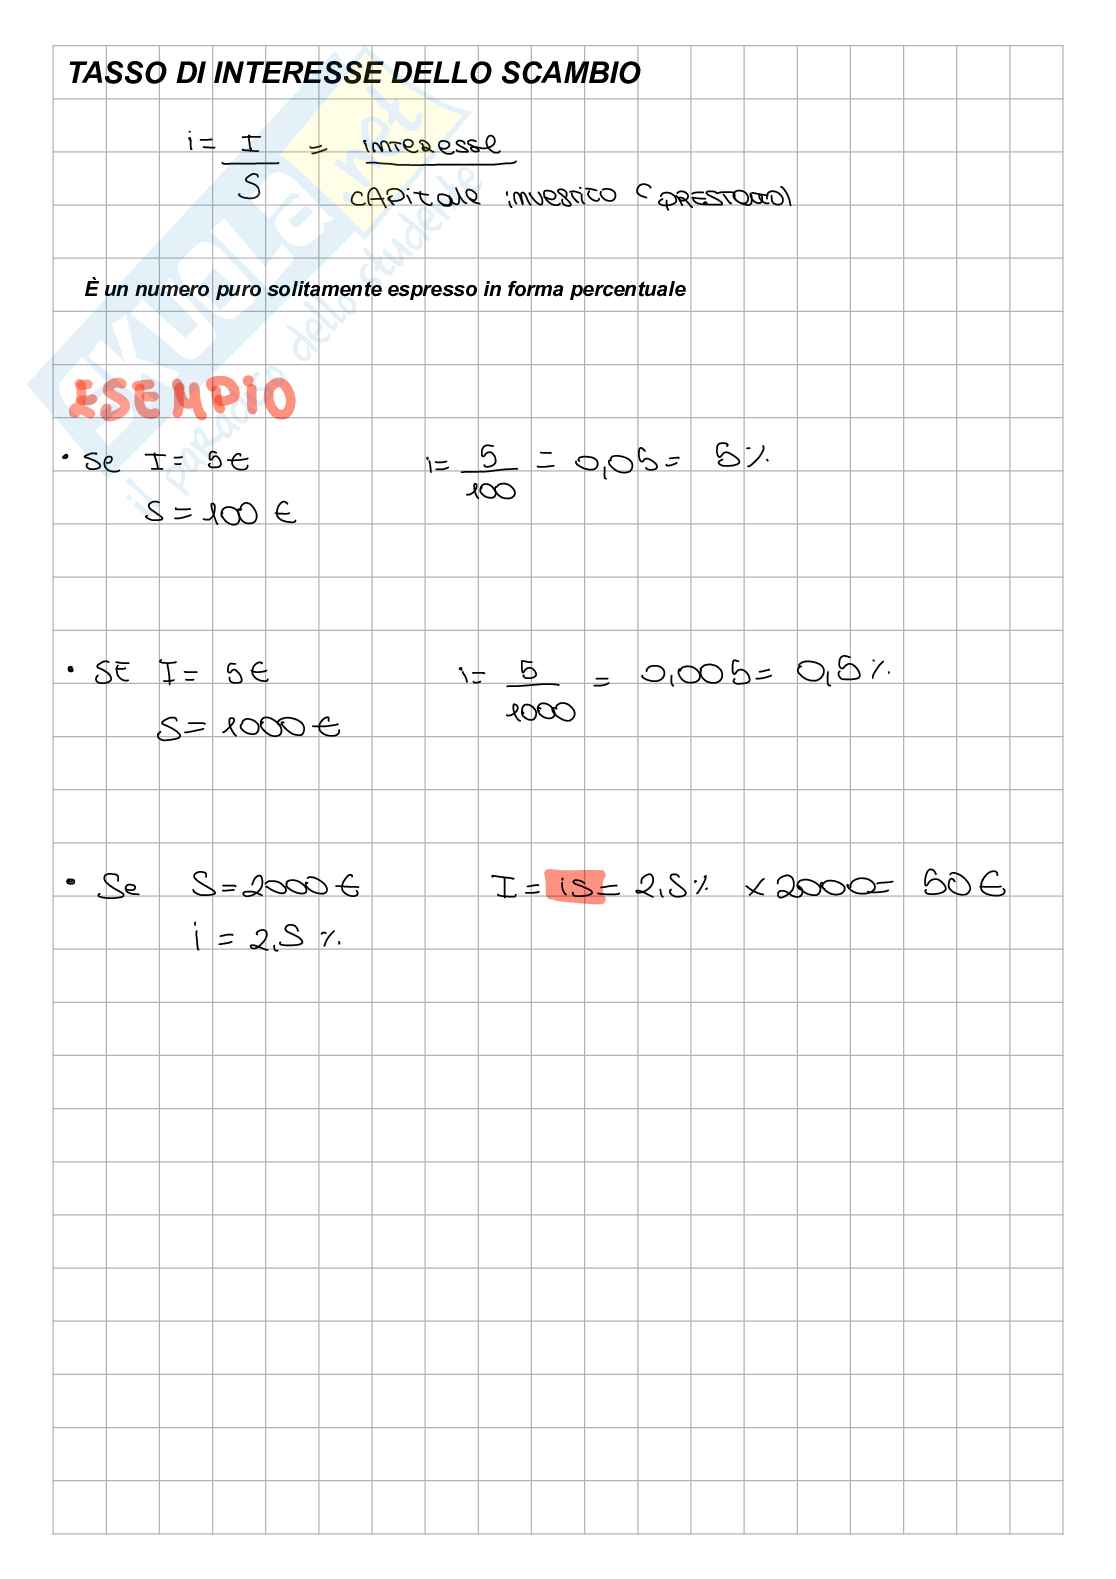 TASSO DI INTERESSE DELLO SCAMBIO
i = I / S = interesse / CAPitale investito (PRESTATO)
È un numero puro solitamente espresso in forma percentuale
ESEMPIO
• Se I = 5€ i = 5/100 = 0,05 = 5%
S = 100 €
• SE I = 5€ i = 5/1000 = 0,005 = 0,5%
S = 1000 €
• Se S = 2000 € I = iS = 2,5% x 2000 = 50 €
i = 2,5 %
SKUOLA.net
il paradiso dello studente